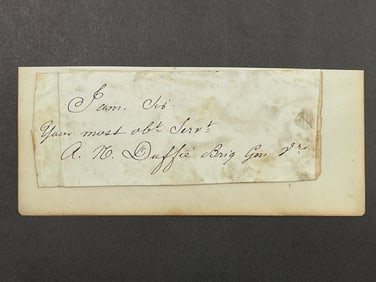 I am. Sir.
Your most obt. Servt.
A. N. Duffié Brig Gen. Vs.